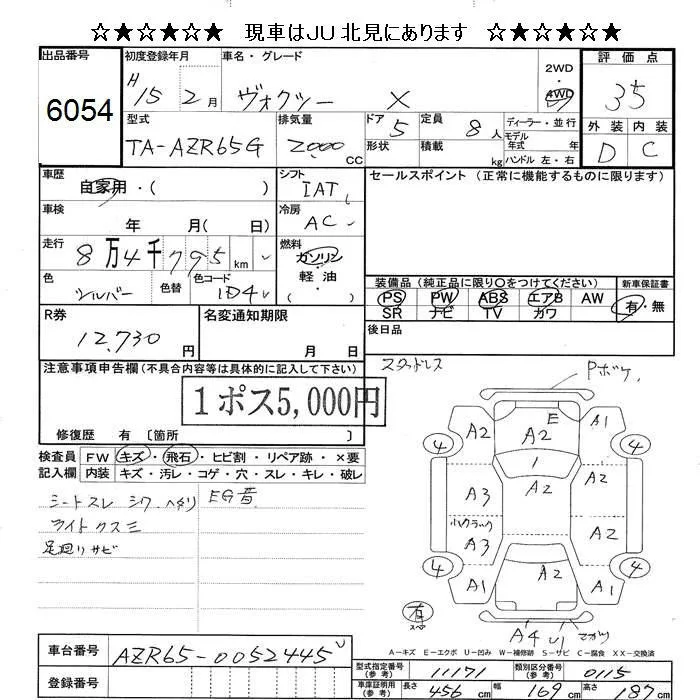 ☆★☆★☆★ 現車はJU北見にあります ☆★☆★☆★
出品番号 初度登録年月 車名・グレード 2WD 評価点
6054 H15 2月 ヴォクシー X 4WD 35
型式 排気量 ドア 5 定員 8人 ディーラー・並行 外装 内装
TA-AZR65G 2000cc 形状 積載 kg モデル年式 ハンドル 左・右 D C
車歴 自家用・( ) シフト IAT セールスポイント(正常に機能するものに限ります)
車検 年 月( 日) 冷房 AC
走行 8万4千795km 燃料 ガソリン 軽油
色 シルバー 色替 色コード 1D4 装備品(純正品に限り○をつけてください) 新車保証書
PS PW ABS エアB AW 有・無
SR ナビ TV カワ
R券 12,730円 名変通知期限 月 日 後日品
注意事項申告欄(不具合内容等は具体的に記入して下さい) スタッドレス Pボケ
1ポス5,000円
修復歴 有 〔箇所
検査員 FW キズ・飛石・ヒビ割・リペア跡・×要
記入欄 内装 キズ・汚レ・コゲ・穴・スレ・キレ・破レ
シートスレ シワ ヘタリ EG音
ライトクスミ
足廻りサビ
E
A2 A2 A1
4 4
1
A3 A2
小Wクラック A2
A3
4 4
A1 A2 A1
有 スペア
A4 U1 マガリ
A-キズ E-エクボ U-凹み W-補修跡 S-サビ C-腐食 XX-交換済
車台番号 AZR65-0052445
登録番号
型式指定番号(参考) 11171 類別区分番号(参考) 0115
車庫証明用(参考) 長さ 456cm 幅 169cm 高さ 187cm